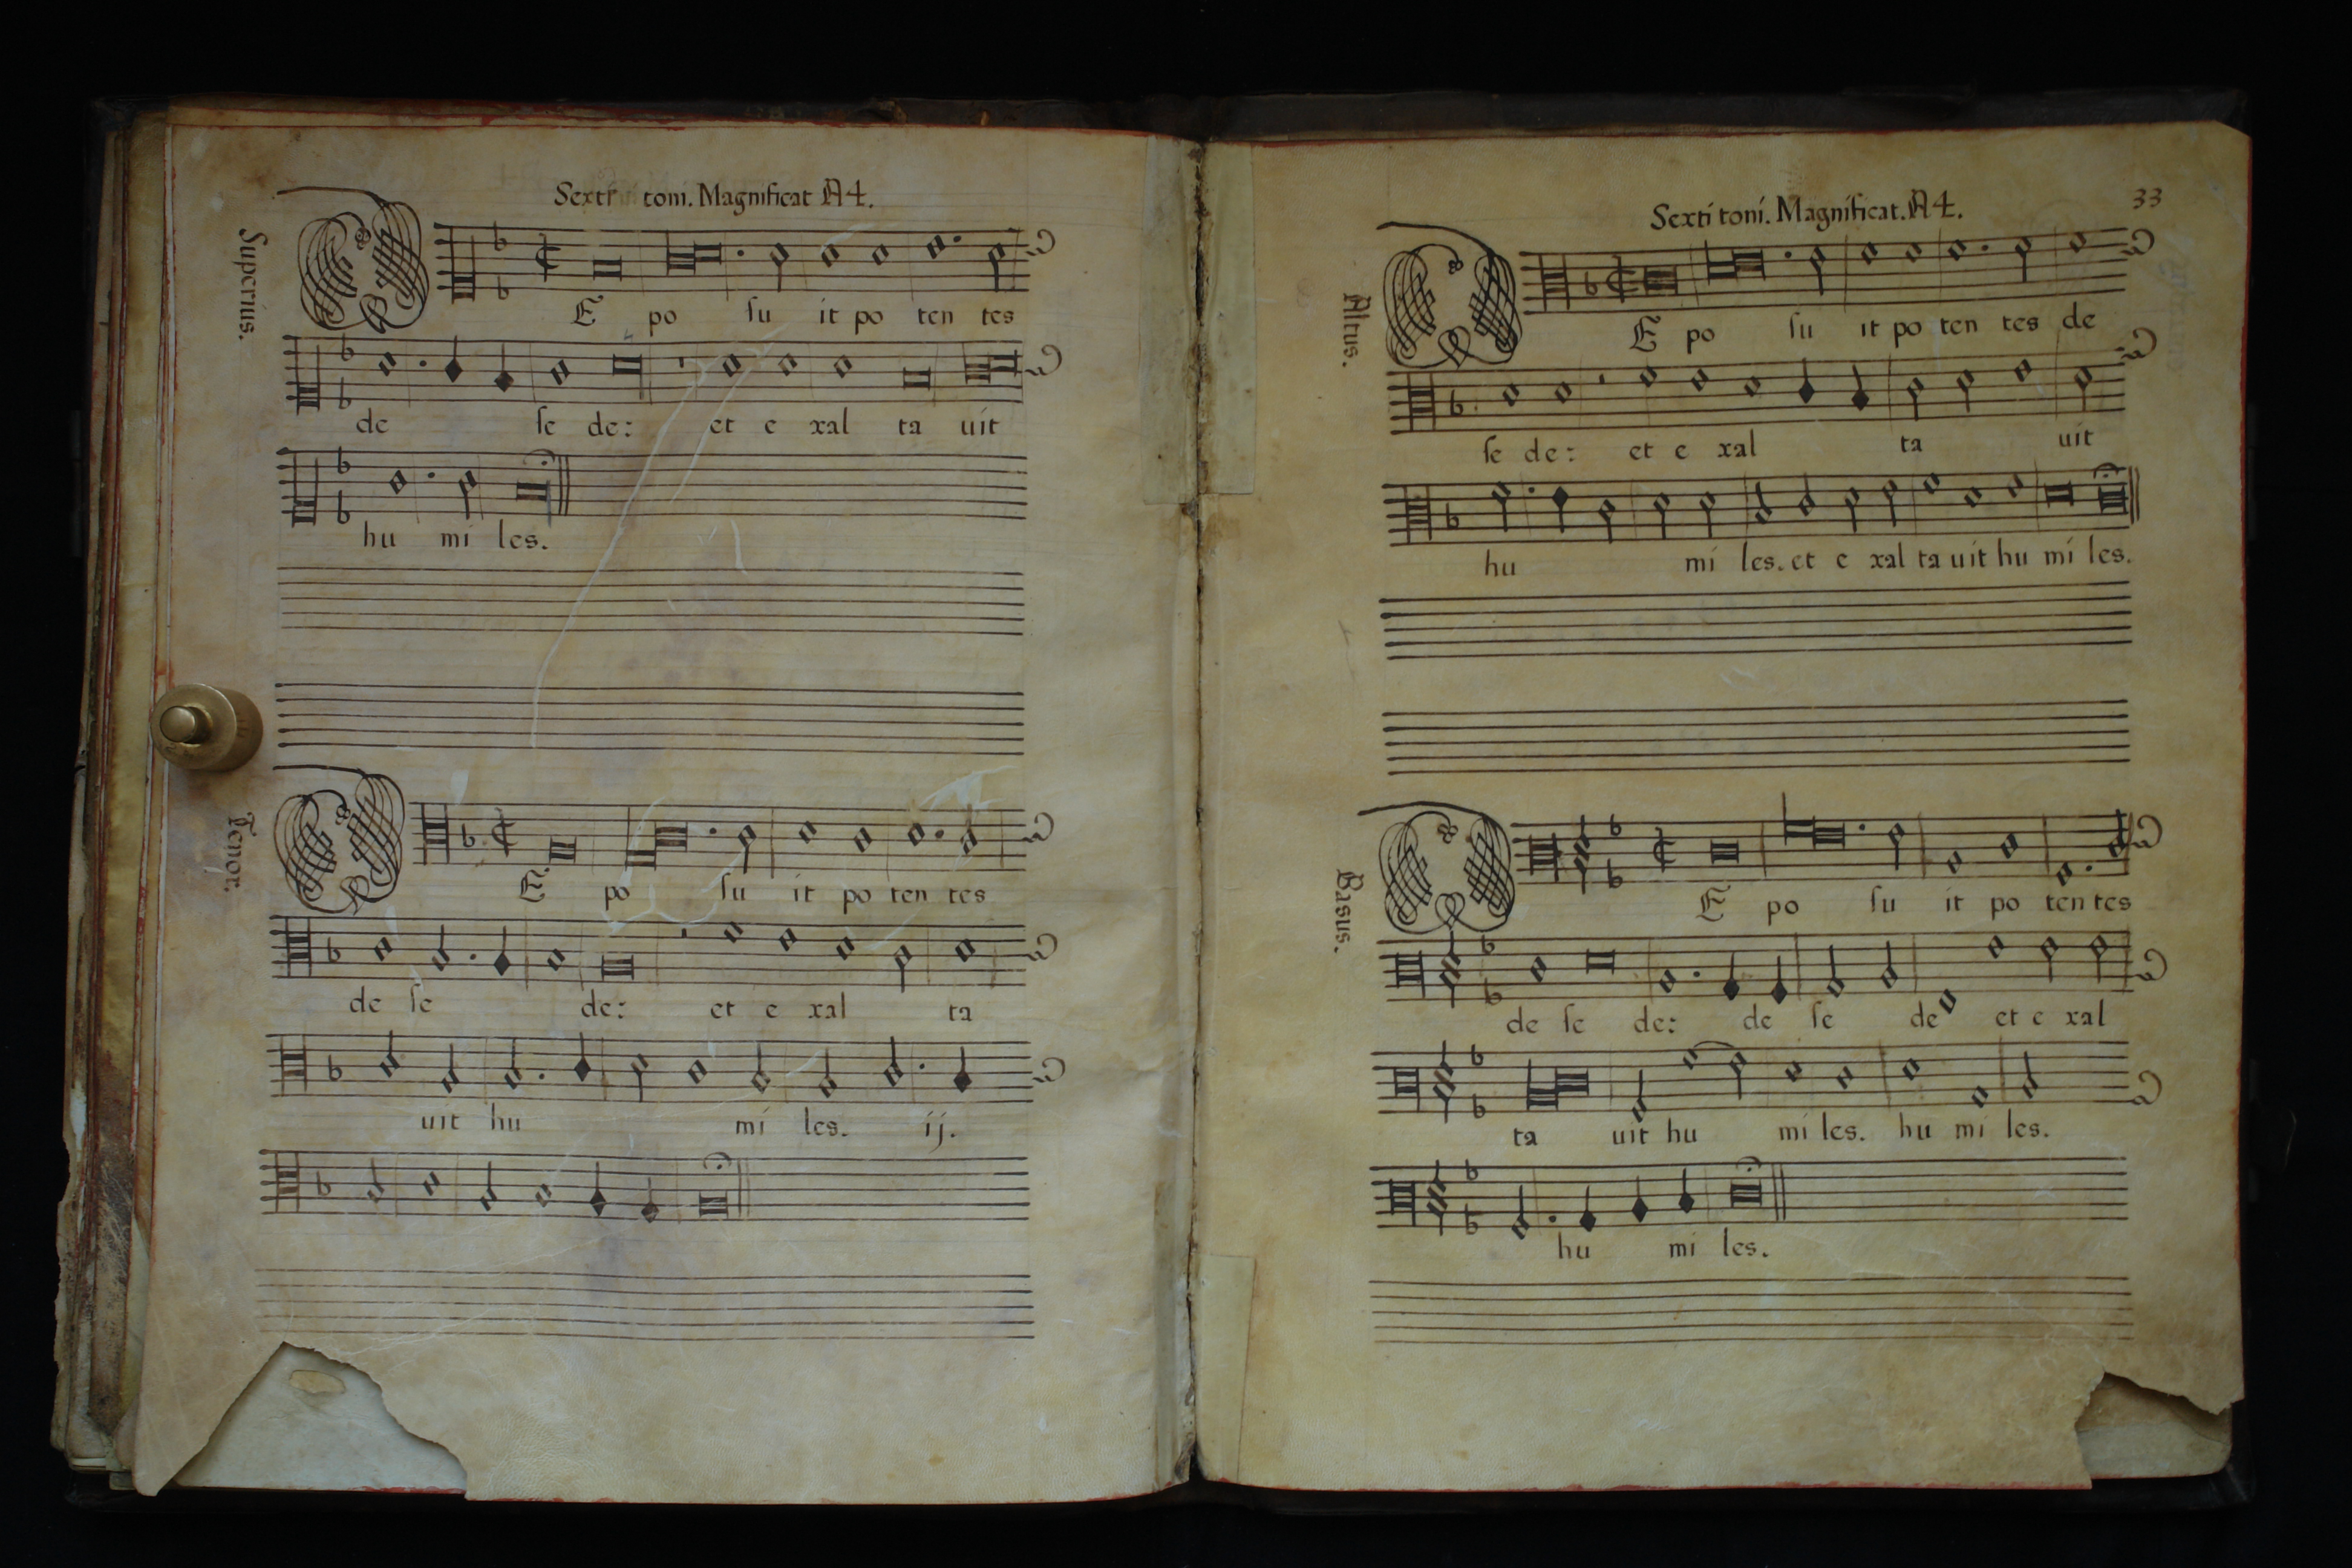 Sexti toni. Magnificat A4.
Superius.
DE po su it po ten tes
de se de: et e xal ta uit
hu mi les.
Tenor.
DE po su it po ten tes
de se de: et e xal ta
uit hu mi les. ij.
33
Sexti toni. Magnificat. A4.
Altus.
DE po su it po ten tes de
se de: et e xal ta uit
hu mi les. et e xal ta uit hu mi les.
Basus.
DE po su it po ten tes
de se de: de se de et e xal
ta uit hu mi les. hu mi les.
hu mi les.